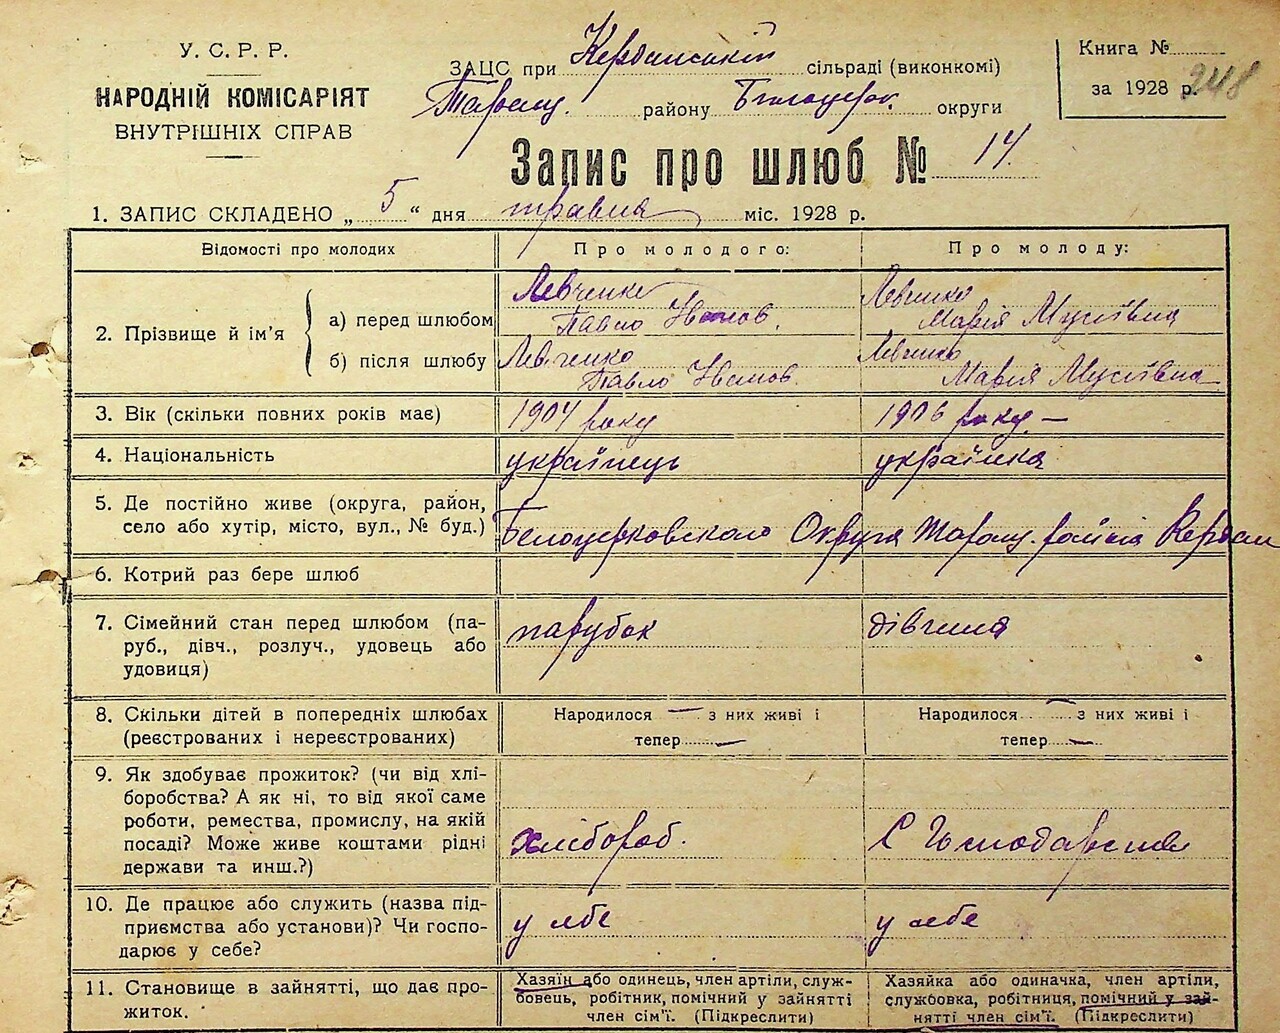 У. С. Р. Р.
НАРОДНІЙ КОМІСАРІЯТ
ВНУТРІШНІХ СПРАВ
ЗАЦС при Керданській сільраді (виконкомі)
Таращ. району Білоцерк. округи
Книга №
за 1928 р. 248
Запис про шлюб № 14
1. ЗАПИС СКЛАДЕНО „ 5 “ дня травня міс. 1928 р.
Відомості про молодих
Про молодого:
Про молоду:
2. Прізвище й ім'я
а) перед шлюбом
Левченко
Павло Иванов.
Левченко
Марія Мусіївна
б) після шлюбу
Левченко
Павло Иванов.
Левченко
Марія Мусіївна
3. Вік (скільки повних років має)
1904 року
1906 року —
4. Національність
українець
українка
5. Де постійно живе (округа, район,
село або хутір, місто, вул., № буд.)
Белоцерковского Округа Таращ. района Кердан
6. Котрий раз бере шлюб
7. Сімейний стан перед шлюбом (па-
руб., дівч., розлуч., удовець або
удовиця)
парубок
дівчина
8. Скільки дітей в попередніх шлюбах
(реєстрованих і нереєстрованих)
Народилося — з них живі і
тепер —
Народилося — з них живі і
тепер —
9. Як здобуває прожиток? (чи від хлі-
боробства? А як ні, то від якої саме
роботи, ремества, промислу, на якій
посаді? Може живе коштами рідні
держави та инш.?)
хлібороб.
10. Де працює або служить (назва під-
приємства або установи)? Чи госпо-
дарює у себе?
у себе
у себе
11. Становище в зайнятті, що дає про-
житок.
Хазяїн або одинець, член артіли, служ-
бовець, робітник, помічний у зайнятті
член сім'ї. (Підкреслити)
Хазяйка або одиначка, член артіли,
службовка, робітниця, помічний у зай-
нятті член сім'ї. (Підкреслити)